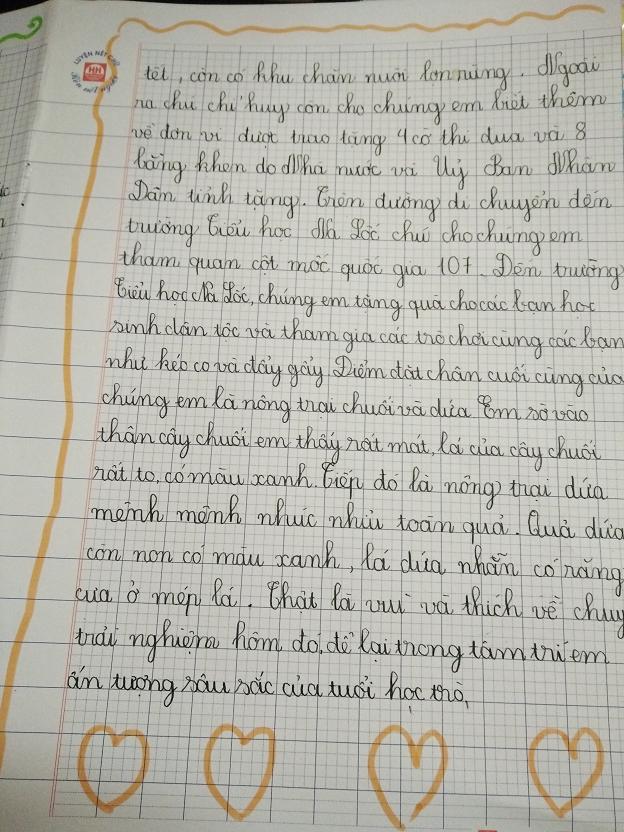 LUYỆN NÉT CHỮ
HH
tốt, còn có khu chăn nuôi lợn rừng. Ngoài
ra chú chỉ huy còn cho chúng em biết thêm
về đơn vị được trao tặng 4 cờ thi đua và 8
bằng khen do Nhà nước và Uỷ Ban Nhân
Dân tỉnh tặng. Trên đường di chuyển đến
trường Tiểu học Nà Lốc chú cho chúng em
tham quan cột mốc quốc gia 107. Đến trường
Tiểu học Nà Lốc, chúng em tặng quà cho các bạn học
sinh dân tộc và tham gia các trò chơi cùng các bạn
như kéo co và đẩy gậy. Điểm đặt chân cuối cùng của
chúng em là nông trại chuối và dứa. Em sờ vào
thân cây chuối em thấy rất mát, lá của cây chuối
rất to, có màu xanh. Tiếp đó là nông trại dứa
mênh mông nhức nhối toàn quả. Quả dứa
còn non có màu xanh, lá dứa nhẵn có răng
cưa ở mép lá. Thật là vui và thích về chuy
trải nghiệm hôm đó, để lại trong tâm trí em
ấn tượng sâu sắc của tuổi học trò,